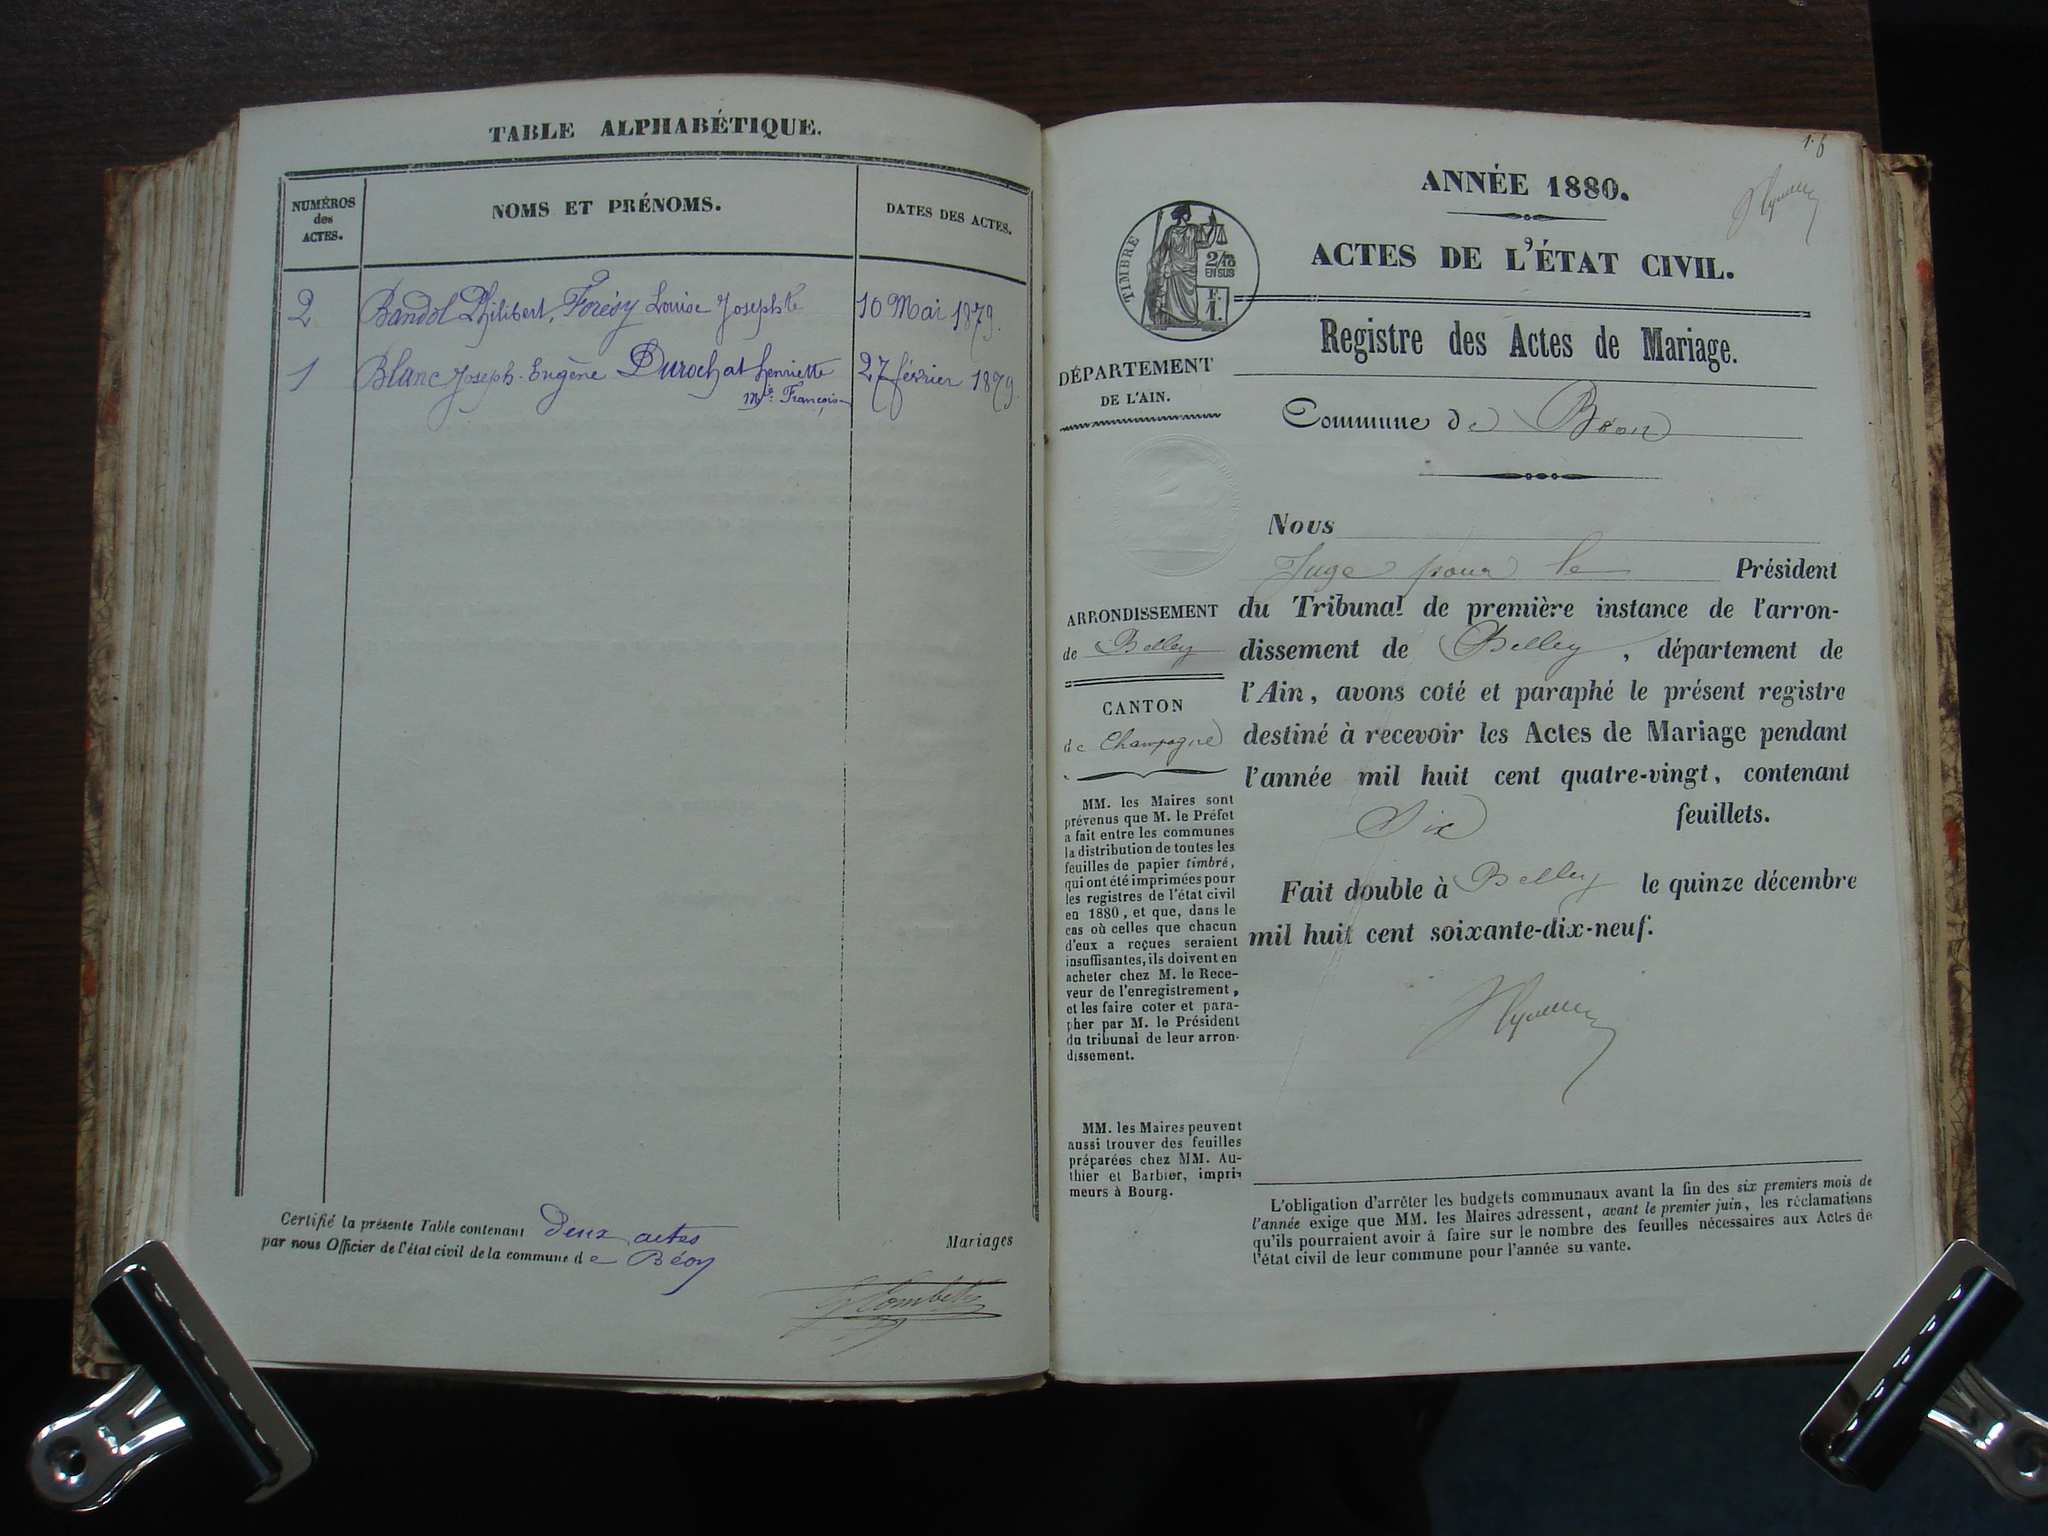 TABLE ALPHABÉTIQUE.
NUMÉROS
des
ACTES.
NOMS ET PRÉNOMS.
DATES DES ACTES.
2 Bandol Philibert, Forésy Louise Josephte 10 Mai 1879.
1 Blanc Joseph-Eugène Durochat henriette 27 février 1879.
Mie. François
Certifié la présente Table contenant deux actes
par nous Officier de l'état civil de la commune de Béon
Mariages
1. f
ANNÉE 1880.
ACTES DE L'ÉTAT CIVIL.
TIMBRE
2/10
EN SUS
F.
1.
Registre des Actes de Mariage.
DÉPARTEMENT
DE L'AIN.
Commune de Béon
Nous
Juge pour le Président
du Tribunal de première instance de l'arron-
dissement de Belley, département de
l'Ain, avons coté et paraphé le présent registre
destiné à recevoir les Actes de Mariage pendant
l'année mil huit cent quatre-vingt, contenant
Six feuillets.
Fait double à Belley le quinze décembre
mil huit cent soixante-dix-neuf.
ARRONDISSEMENT
de Belley
CANTON
de Champagne
MM. les Maires sont
prévenus que M. le Préfet
a fait entre les communes
la distribution de toutes les
feuilles de papier timbré,
qui ont été imprimées pour
les registres de l'état civil
en 1880, et que, dans le
cas où celles que chacun
d'eux a reçues seraient
insuffisantes, ils doivent en
acheter chez M. le Rece-
veur de l'enregistrement,
et les faire coter et para-
pher par M. le Président
du tribunal de leur arron-
dissement.
MM. les Maires peuvent
aussi trouver des feuilles
préparées chez MM. Au-
thier et Barbier, impri-
meurs à Bourg.
L'obligation d'arrêter les budgets communaux avant la fin des six premiers mois de
l'année exige que MM. les Maires adressent, avant le premier juin, les réclamations
qu'ils pourraient avoir à faire sur le nombre des feuilles nécessaires aux Actes de
l'état civil de leur commune pour l'année su vante.